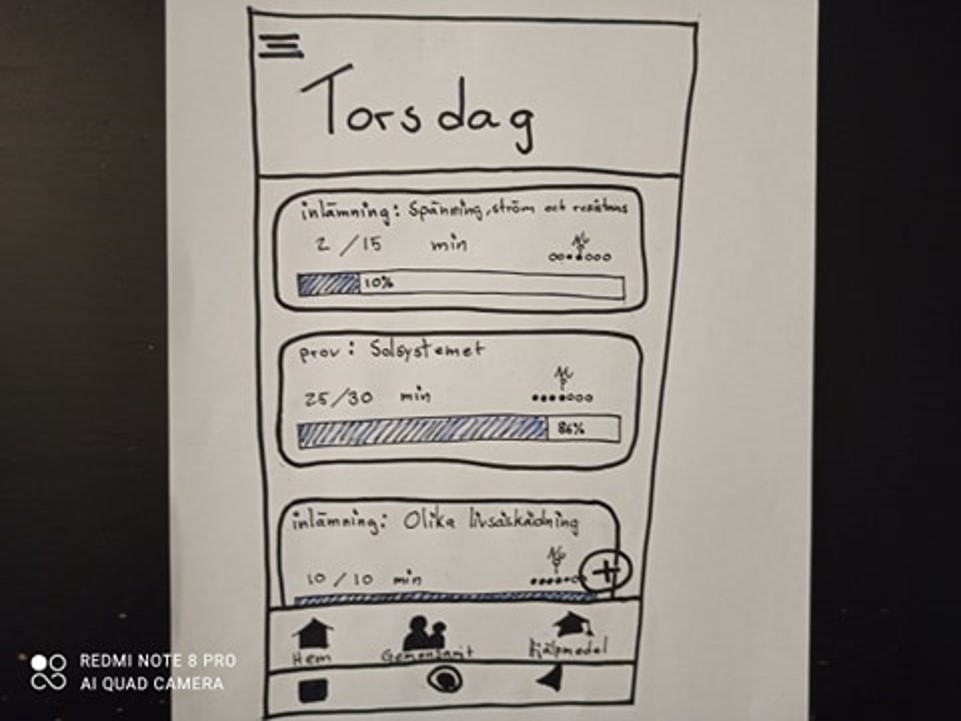 Torsdag
inlämning: Spänning, ström och resistans
2 / 15 min
10%
prov: Solsystemet
25/30 min
86%
inlämning: Olika livsåskådning
10 / 10 min
+
Hem Gemensamt Hjälpmedel
REDMI NOTE 8 PRO
AI QUAD CAMERA